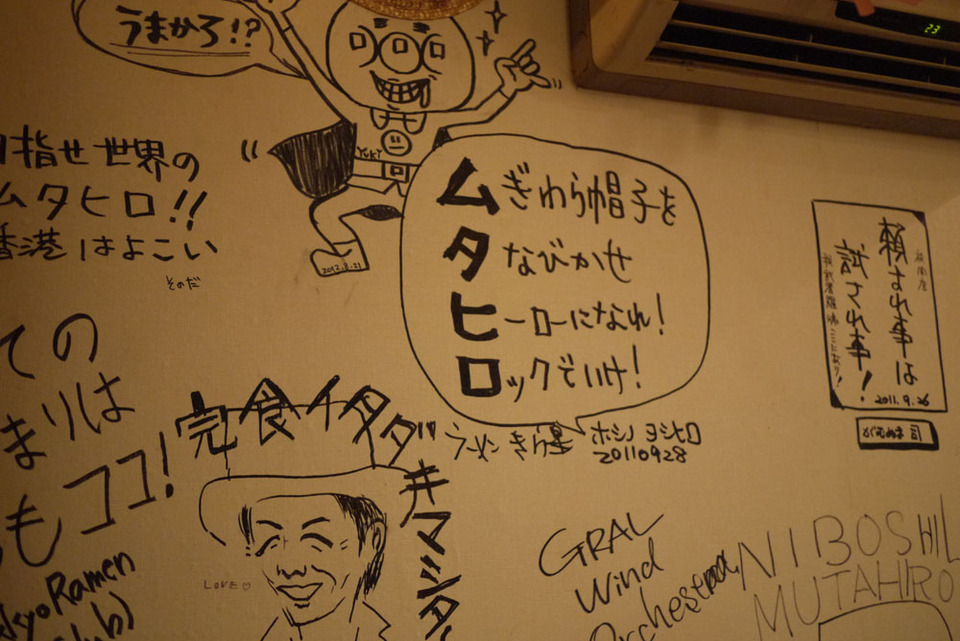 うまかろ!?
23
YuKi
2012.8.21
指せ世界の
ムタヒロ!!
香港はよこい
そのだ
ムぎわら帽子を
タなびかせ
ヒーローになれ!
ロックでいけ!
ラーメン きら星 ホシノ ヨシヒロ
20110928
頼まれ事は
試され事!
2011.9.26
司
ての
まりは
もココ!
Ramen
club)
完食イタダキマシタ
LOVE♡
GRAL
Wind
Orchestra
NIBOSHI
MUTAHIRO